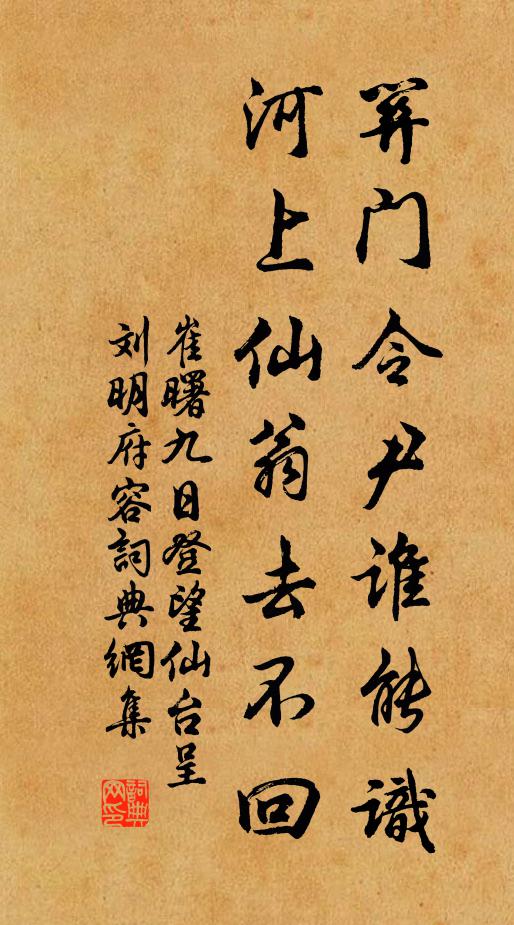 关门令尹谁能識
河上仙翁去不回
崔曙九日登望仙台呈
刘明府容詞典網集
詞典
网印